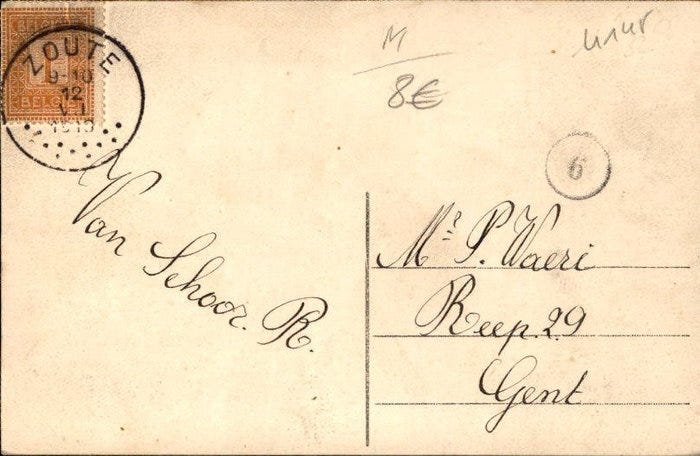 ZOUTE
9-10
12
VI
1913
BELGIË
M
8€
6
Van Schoor. R.
Mr P. Waeri
Reep. 29
Gent